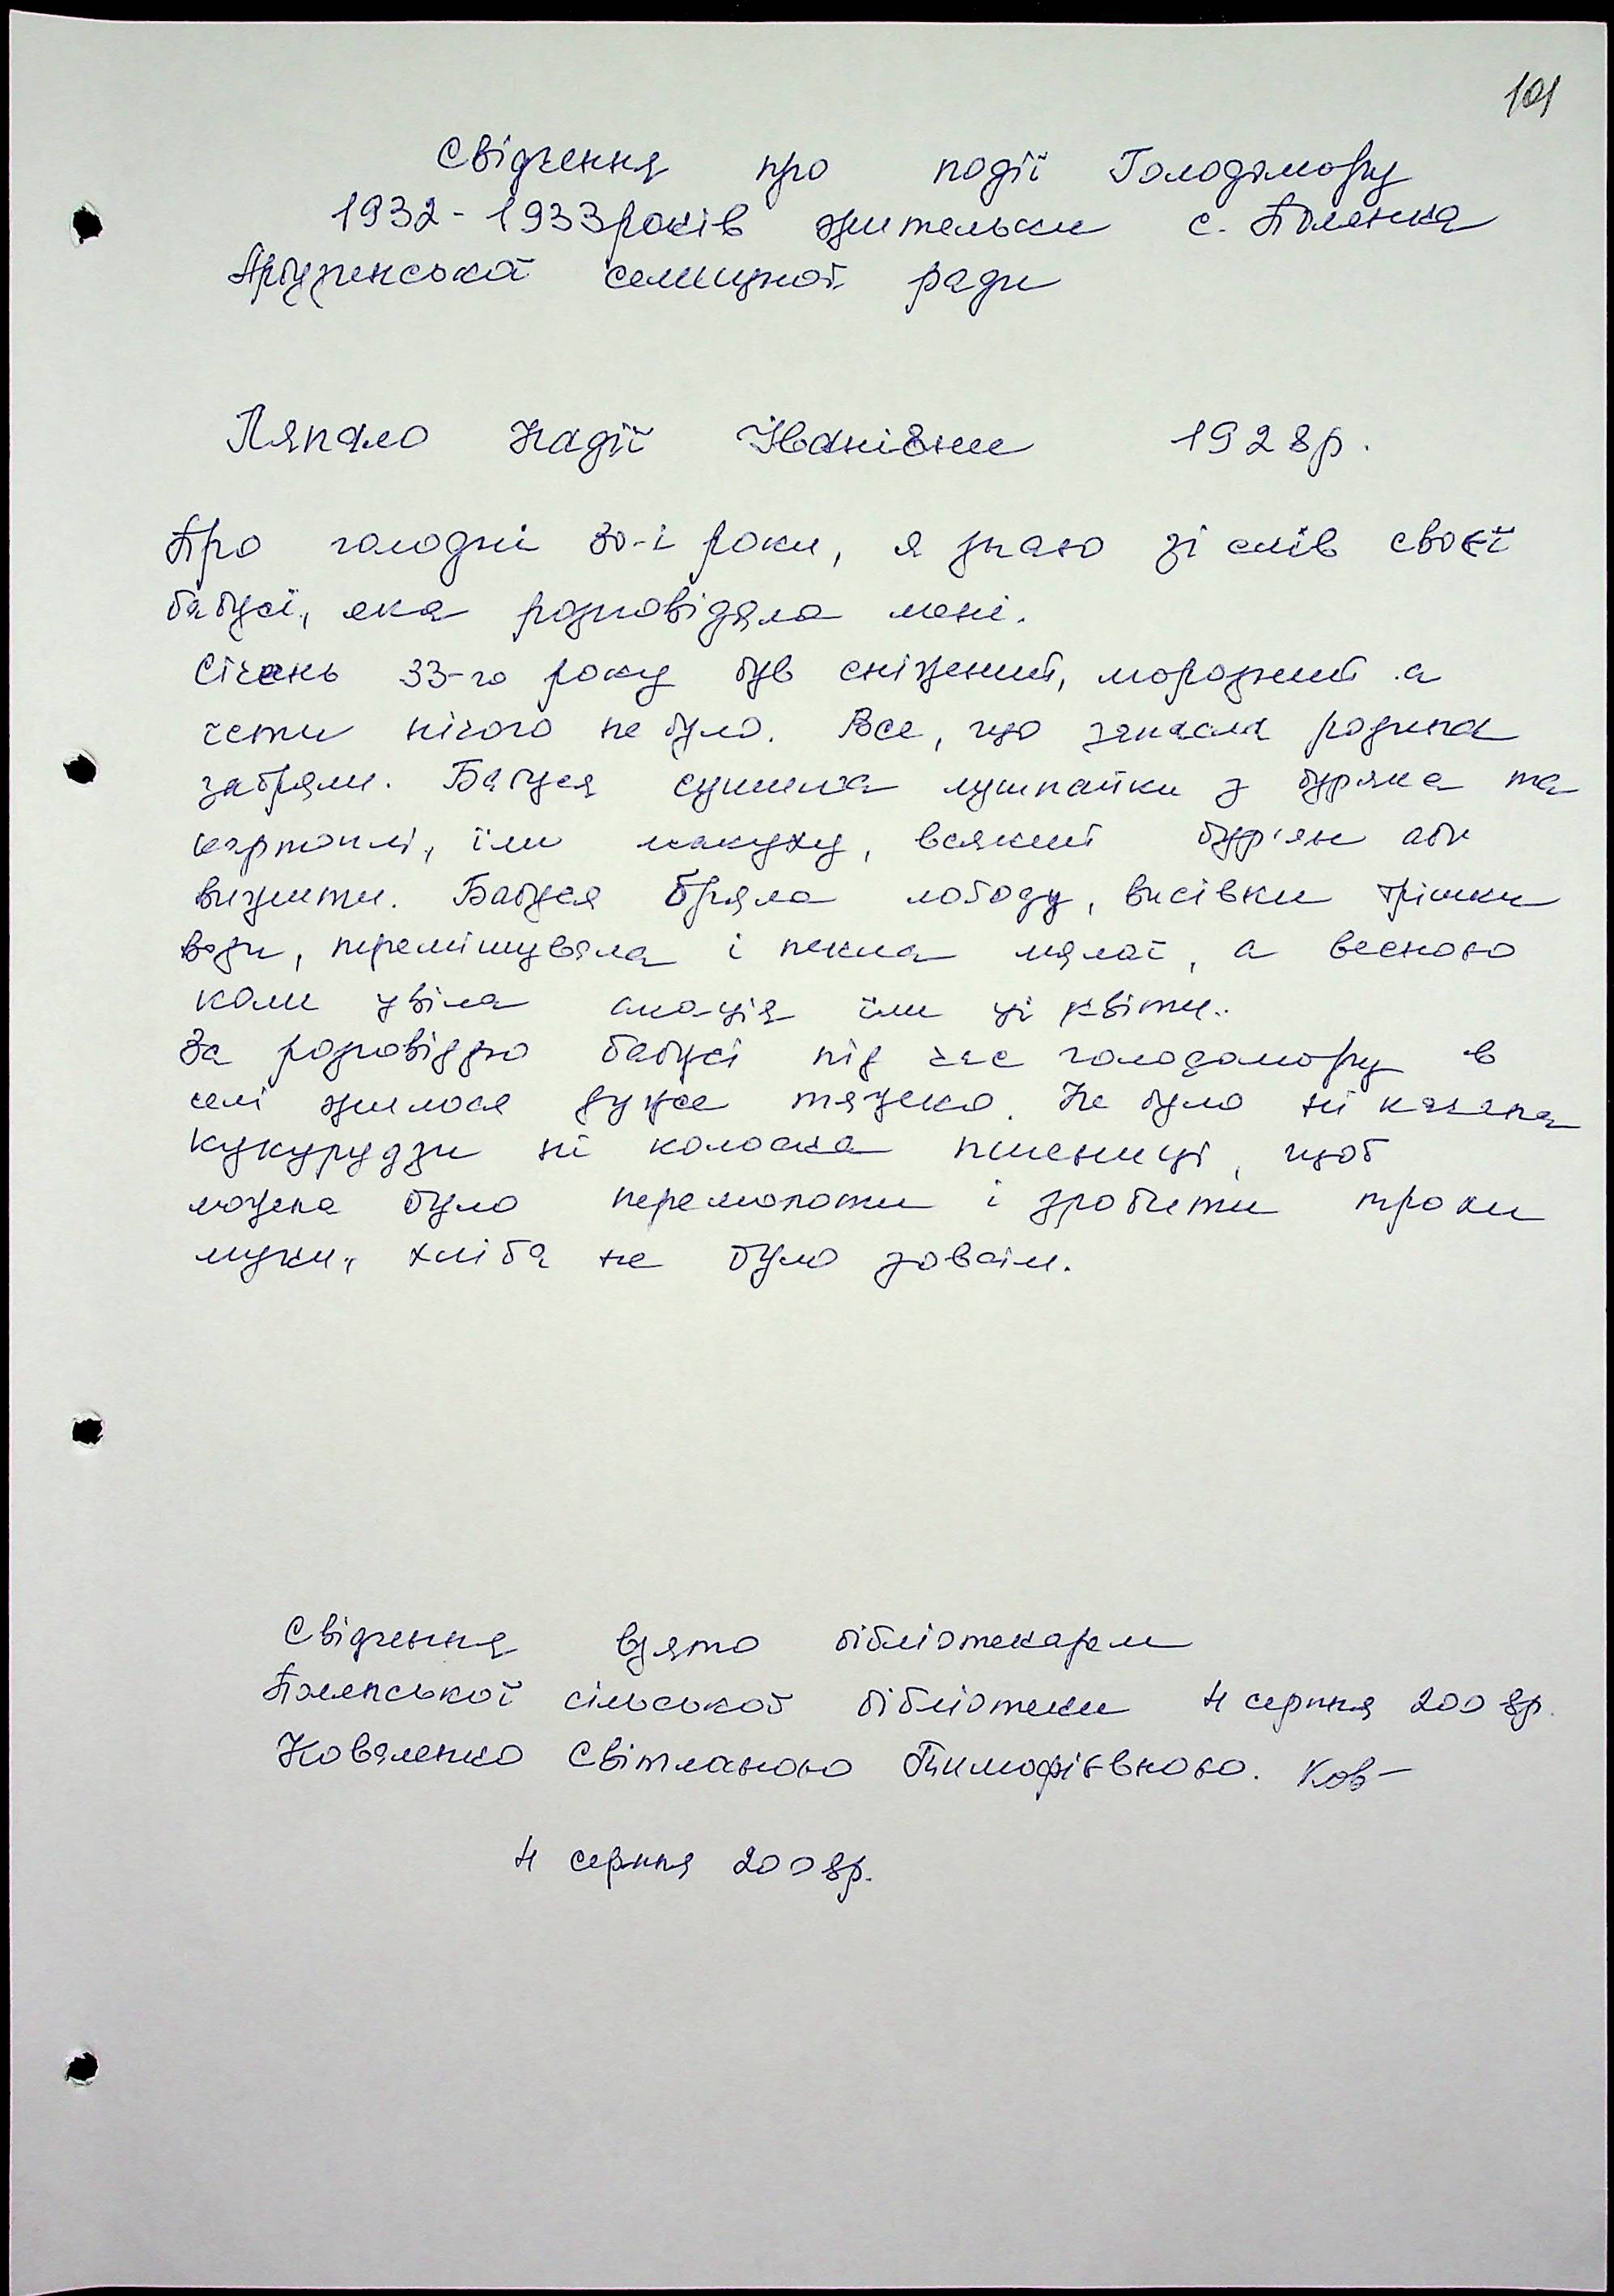 101
Свідчення про події Голодомору
1932-1933років жительки с. Полянка
Арбузинської селищної ради
Ляпало Надії Іванівни 1928р.
Про голодні 30-і роки, я знаю зі слів своєї
бабусі, яка розповідала мені.
Січень 33-го року був сніжений, морозний а
їсти нічого не було. Все, що запасла родина
забрали. Бабуся сушила лушпайки з буряка та
картоплі, їли макуху, всякий бур'ян аби
вижити. Бабуся брала лободу, висівки трішки
води, перемішувала і пекла маляї, а весною
коли цвіла акація їли ці квіти.
За розповіддю бабусі під час голодомору в
селі жилося дуже тяжко. Не було ні качана
кукурудзи ні колоска пшениці, щоб
можна було перемолоти і зробити трохи
муки, хліба не було зовсім.
Свідчення взято бібліотекарем
Полянської сільської бібліотеки 4 серпня 2008р.
Коваленко Світланою Тимофіївною. Ков
4 серпня 2008р.